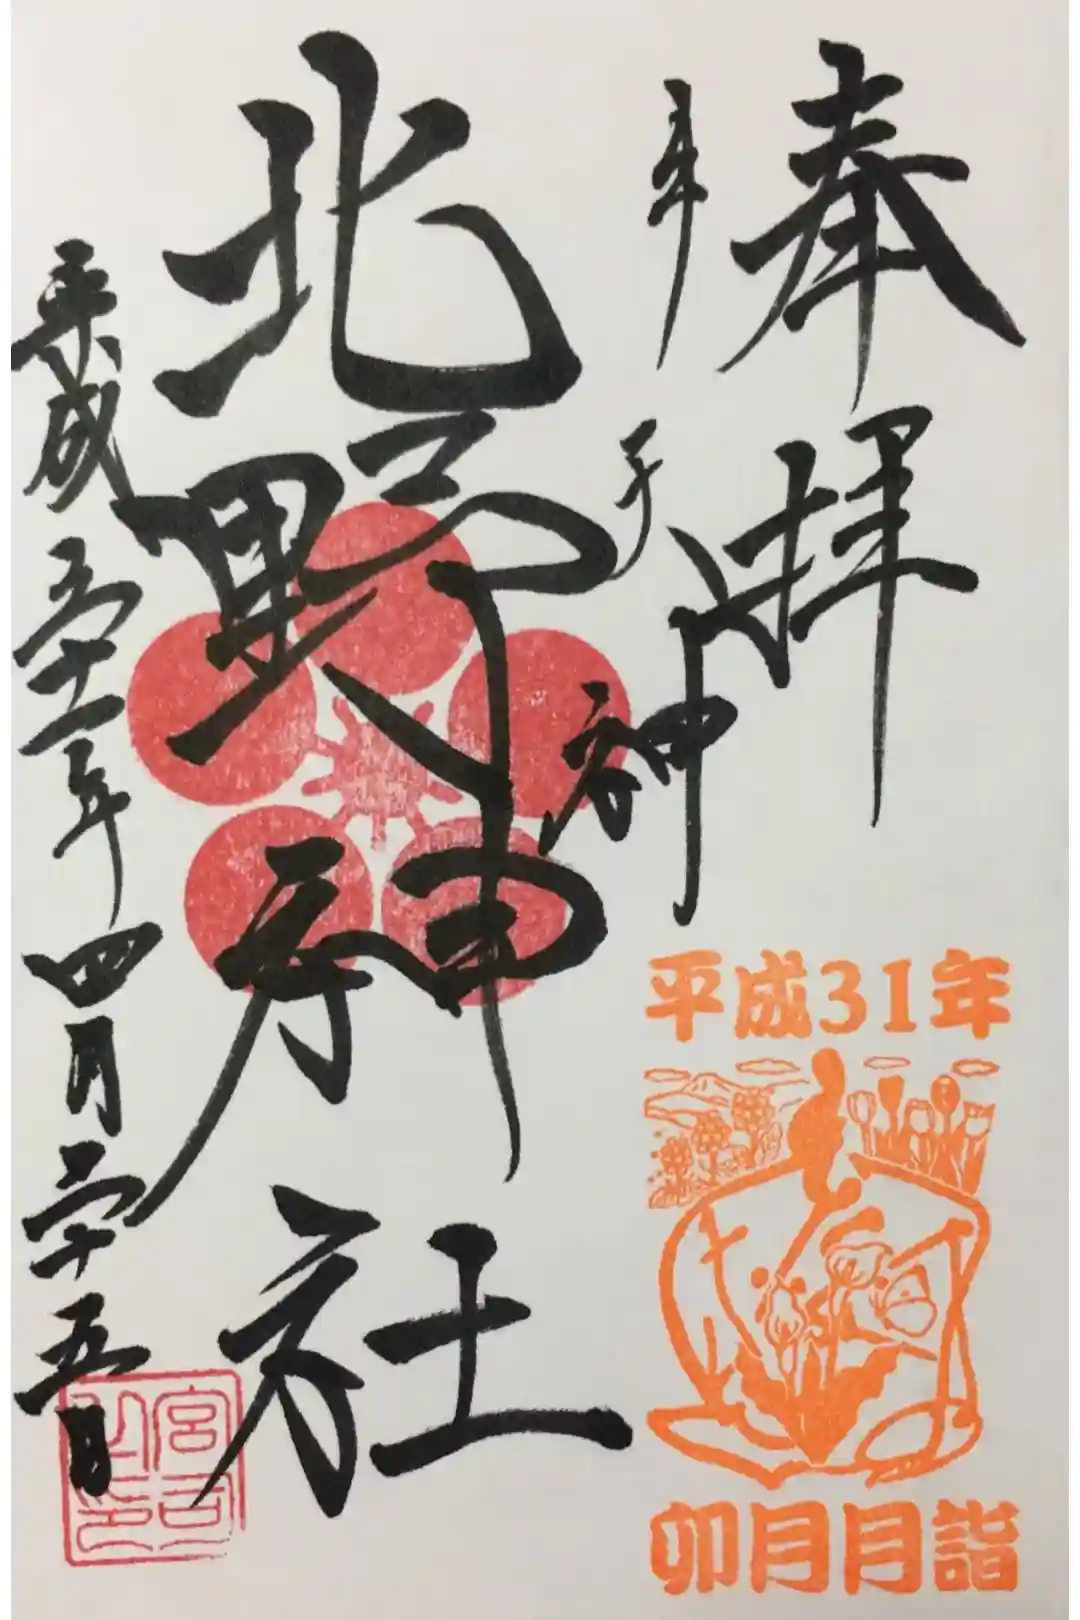 奉拝
神
北野神社
平成三十一年四月二十五日
宮司之印
平成31年
卯月月詣